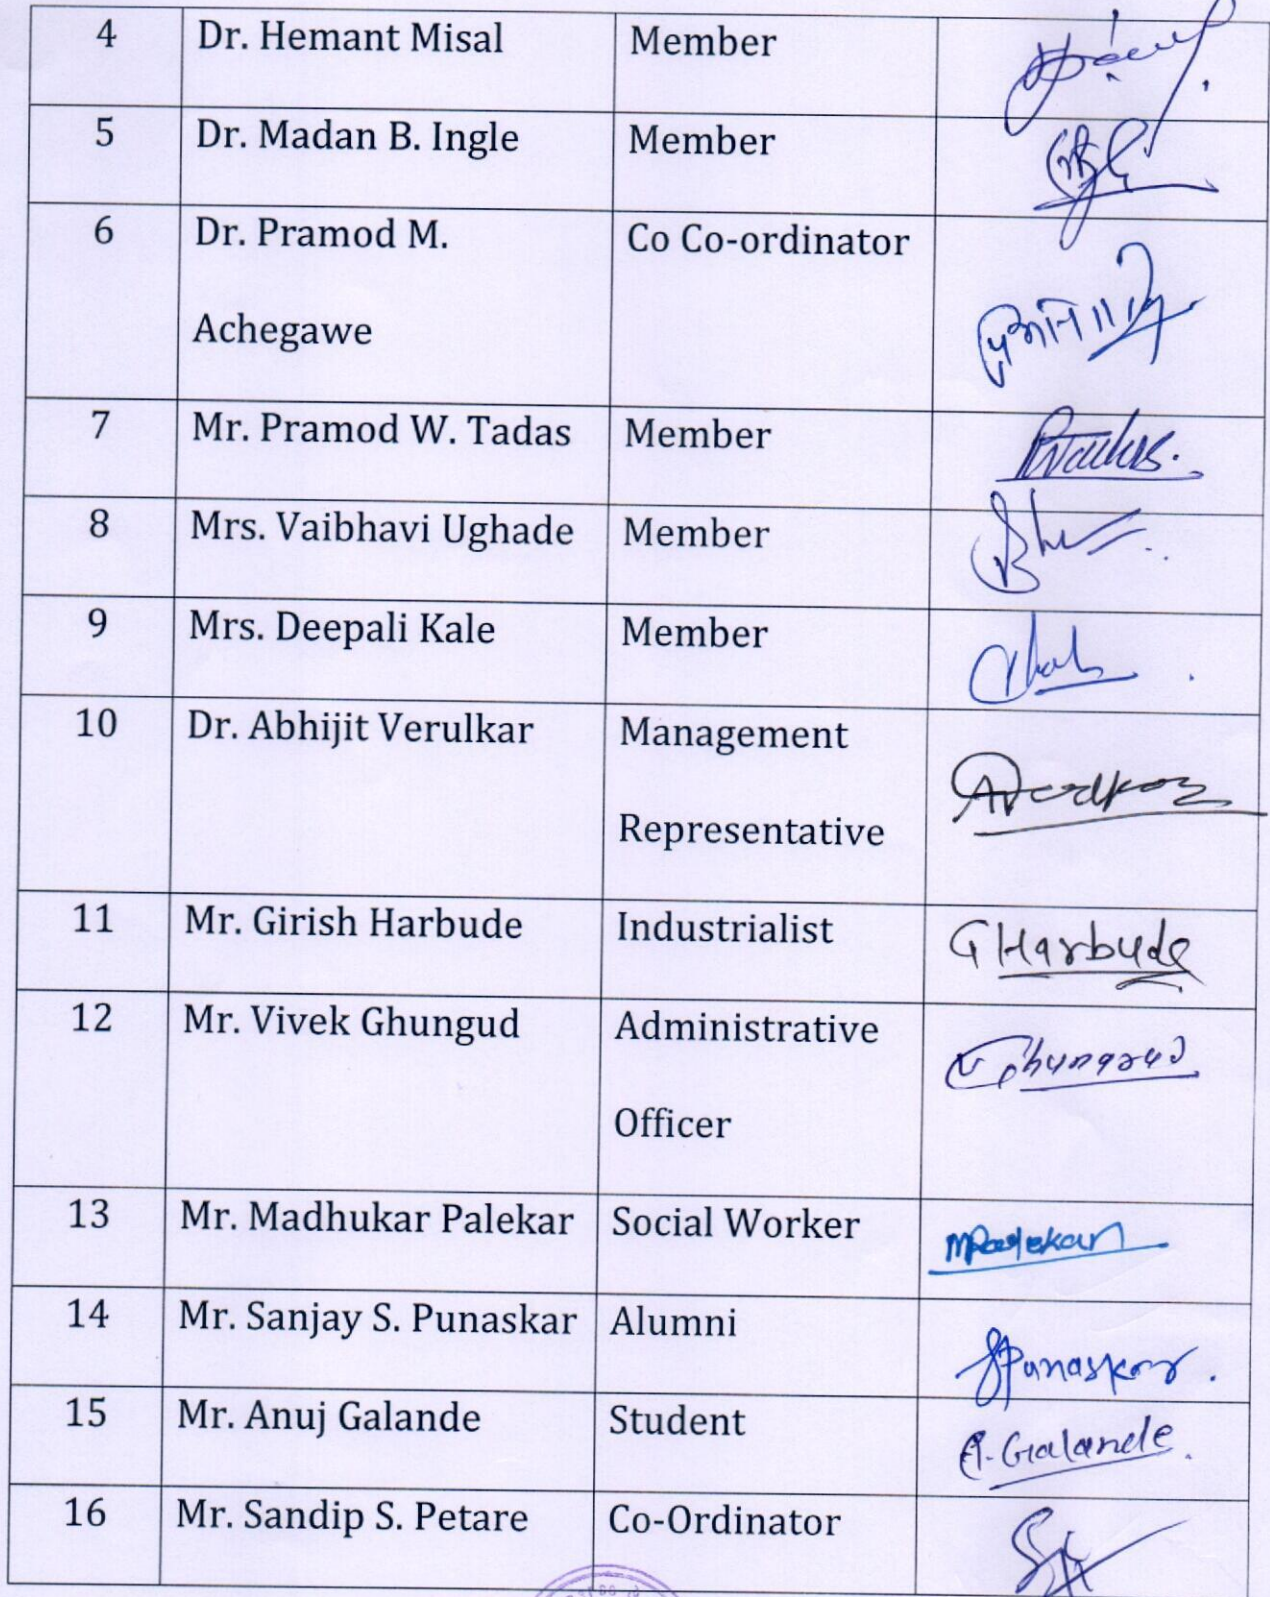 4 Dr. Hemant Misal Member
5 Dr. Madan B. Ingle Member
6 Dr. Pramod M. Co Co-ordinator
Achegawe
7 Mr. Pramod W. Tadas Member
8 Mrs. Vaibhavi Ughade Member
9 Mrs. Deepali Kale Member
10 Dr. Abhijit Verulkar Management
Representative
11 Mr. Girish Harbude Industrialist G Harbude
12 Mr. Vivek Ghungud Administrative
Officer
13 Mr. Madhukar Palekar Social Worker MPalekar
14 Mr. Sanjay S. Punaskar Alumni SPunaskar.
15 Mr. Anuj Galande Student A. Galande.
16 Mr. Sandip S. Petare Co-Ordinator